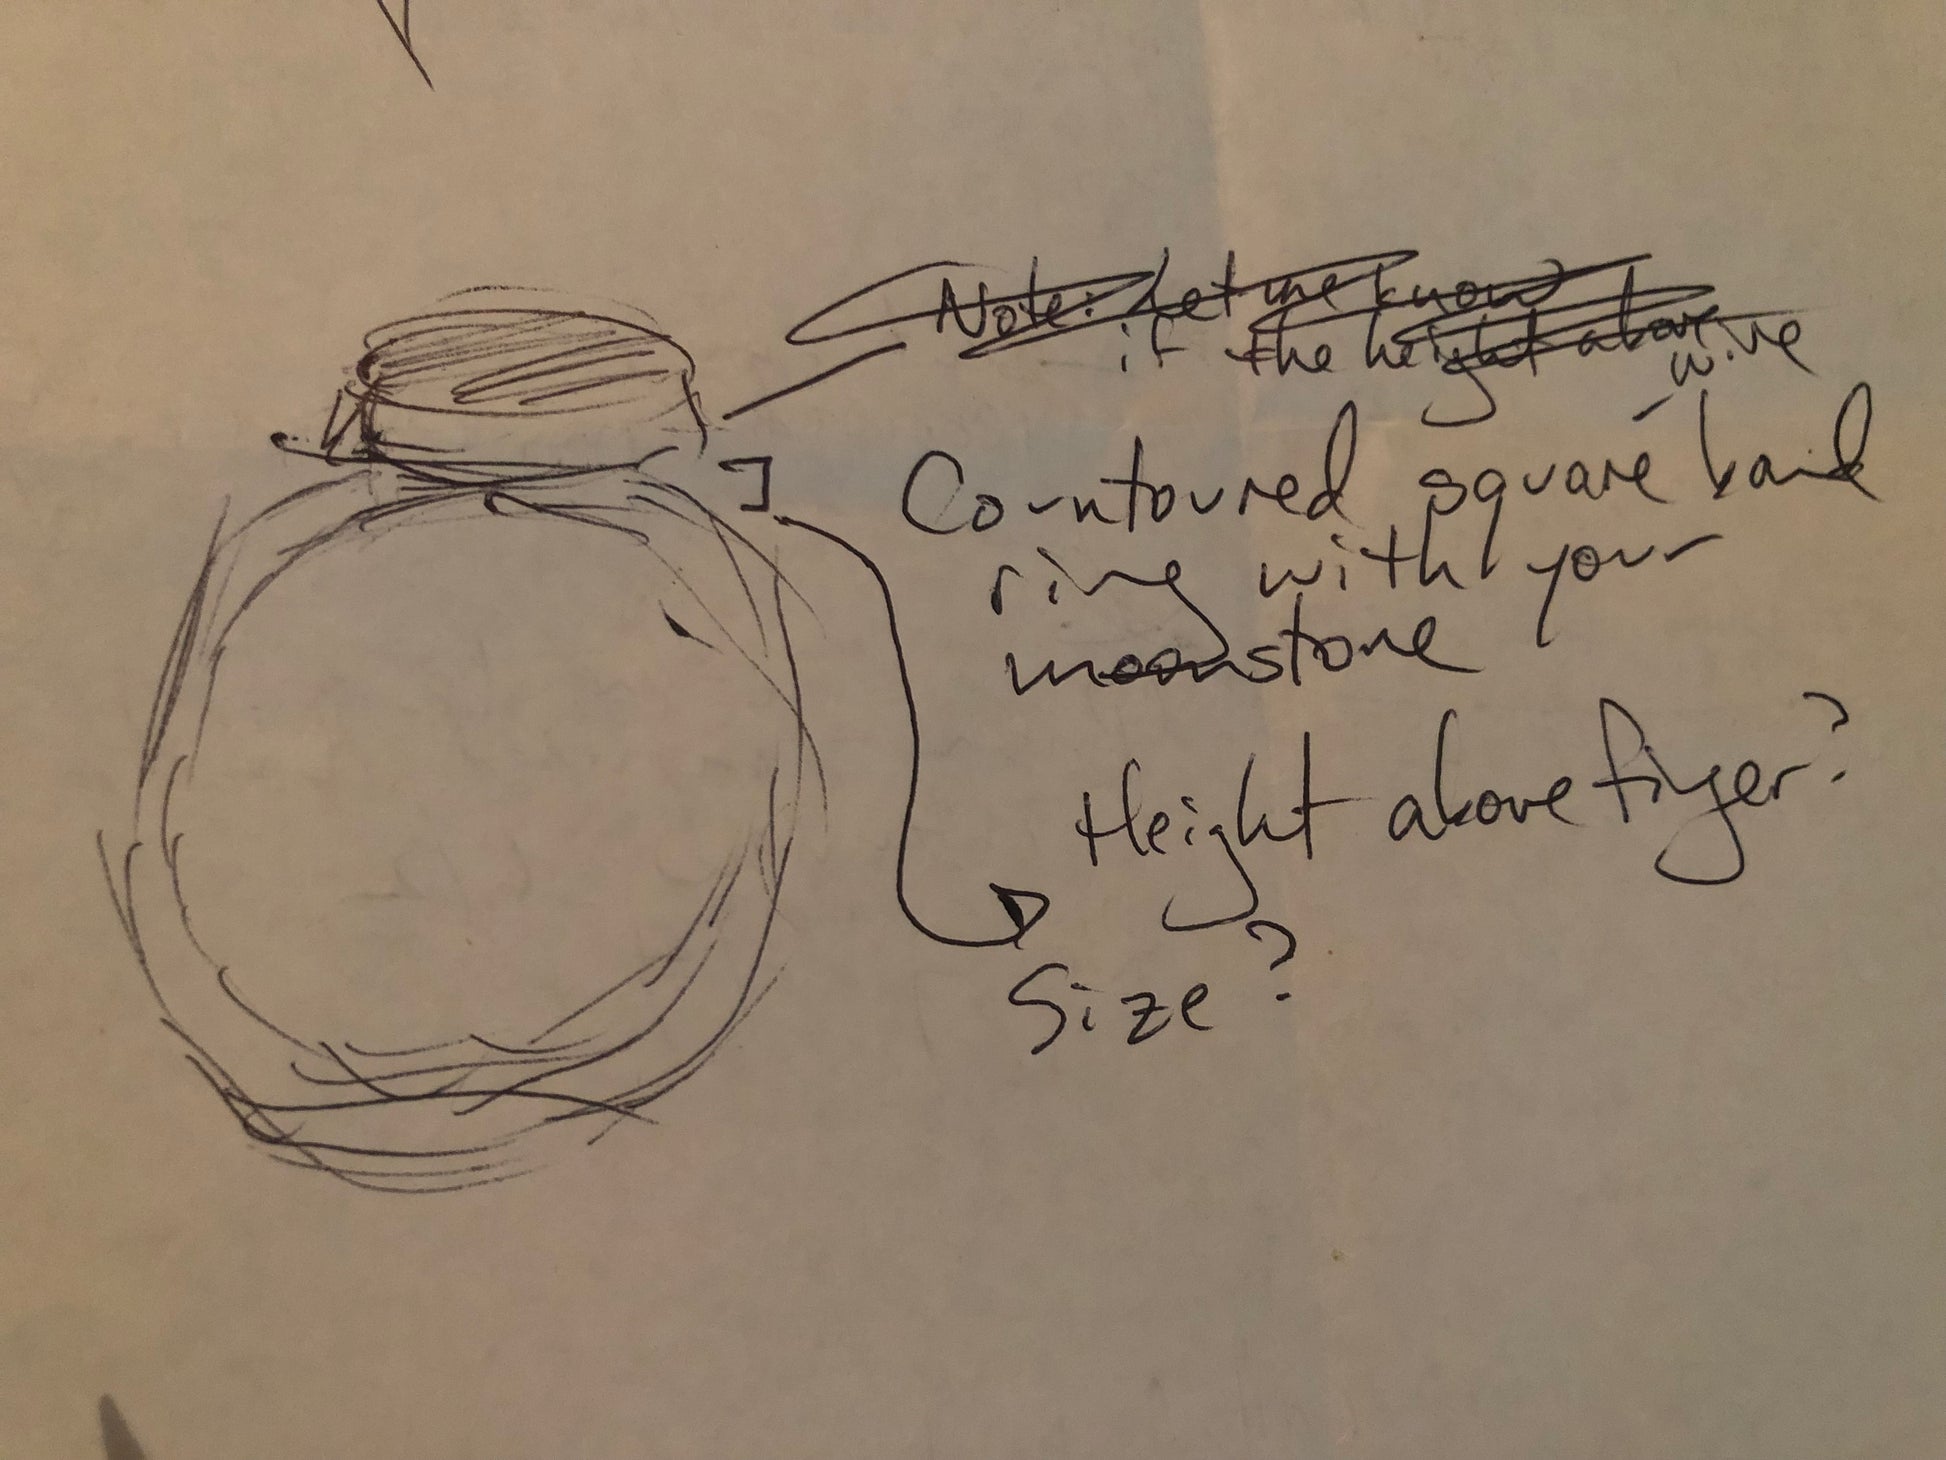 Note: Let me know
if the height above
Contoured square-wire band
ring with your
moonstone
Height above finger?
Size?